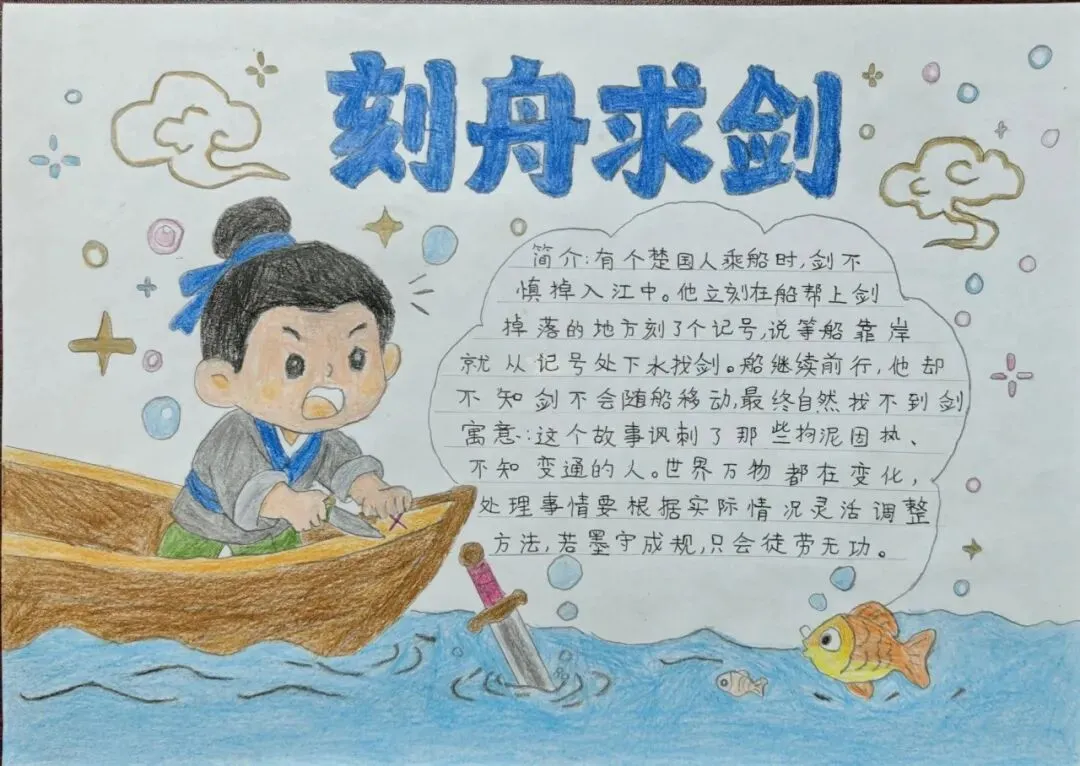 刻舟求剑
简介:有个楚国人乘船时,剑不
慎掉入江中。他立刻在船帮上剑
掉落的地方刻了个记号,说等船靠岸
就从记号处下水找剑。船继续前行,他却
不知剑不会随船移动,最终自然找不到剑
寓意:这个故事讽刺了那些拘泥固执、
不知变通的人。世界万物都在变化,
处理事情要根据实际情况灵活调整
方法,若墨守成规,只会徒劳无功。